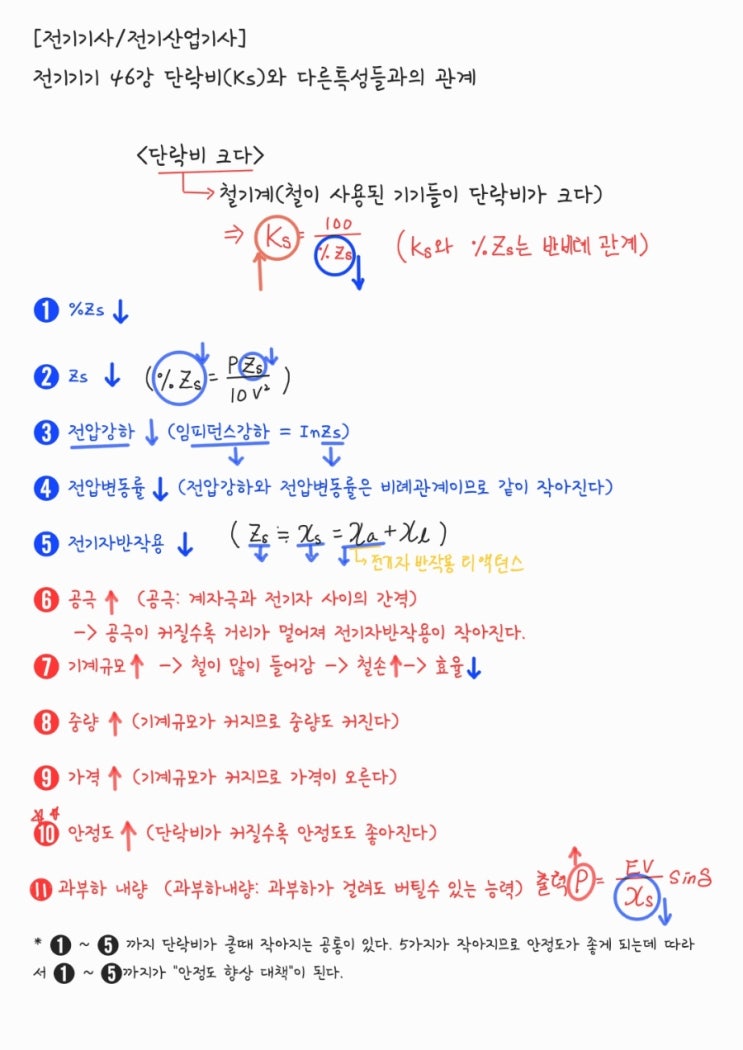 [전기기사/전기산업기사]
전기기기 46강 단락비(Ks)와 다른특성들과의 관계
<단락비 크다>
→ 철기계(철이 사용된 기기들이 단락비가 크다)
⇒ Ks = 100 / %Zs (Ks와 %Zs는 반비례 관계)
↑ ↓
❶ %Zs ↓
❷ Zs ↓ (%Zs ↓ = PZs ↓ / 10V²)
❸ 전압강하 ↓ (임피던스강하 = InZs)
↓ ↓
❹ 전압변동률 ↓ (전압강하와 전압변동률은 비례관계이므로 같이 작아진다)
❺ 전기자반작용 ↓ (Zs ≒ xs = xa + xl)
↓ ↓ ↓ → 전기자 반작용 리액턴스
❻ 공극 ↑ (공극: 계자극과 전기자 사이의 간격)
-> 공극이 커질수록 거리가 멀어져 전기자반작용이 작아진다.
❼ 기계규모 ↑ -> 철이 많이 들어감 -> 철손 ↑ -> 효율 ↓
❽ 중량 ↑ (기계규모가 커지므로 중량도 커진다)
❾ 가격 ↑ (기계규모가 커지므로 가격이 오른다)
☆☆
❿ 안정도 ↑ (단락비가 커질수록 안정도도 좋아진다)
⓫ 과부하 내량 (과부하내량: 과부하가 걸려도 버틸수 있는 능력) 출력 P ↑ = EV / xs ↓ sinδ
* ❶ ~ ❺ 까지 단락비가 클때 작아지는 공통이 있다. 5가지가 작아지므로 안정도가 좋게 되는데 따라
서 ❶ ~ ❺까지가 "안정도 향상 대책"이 된다.